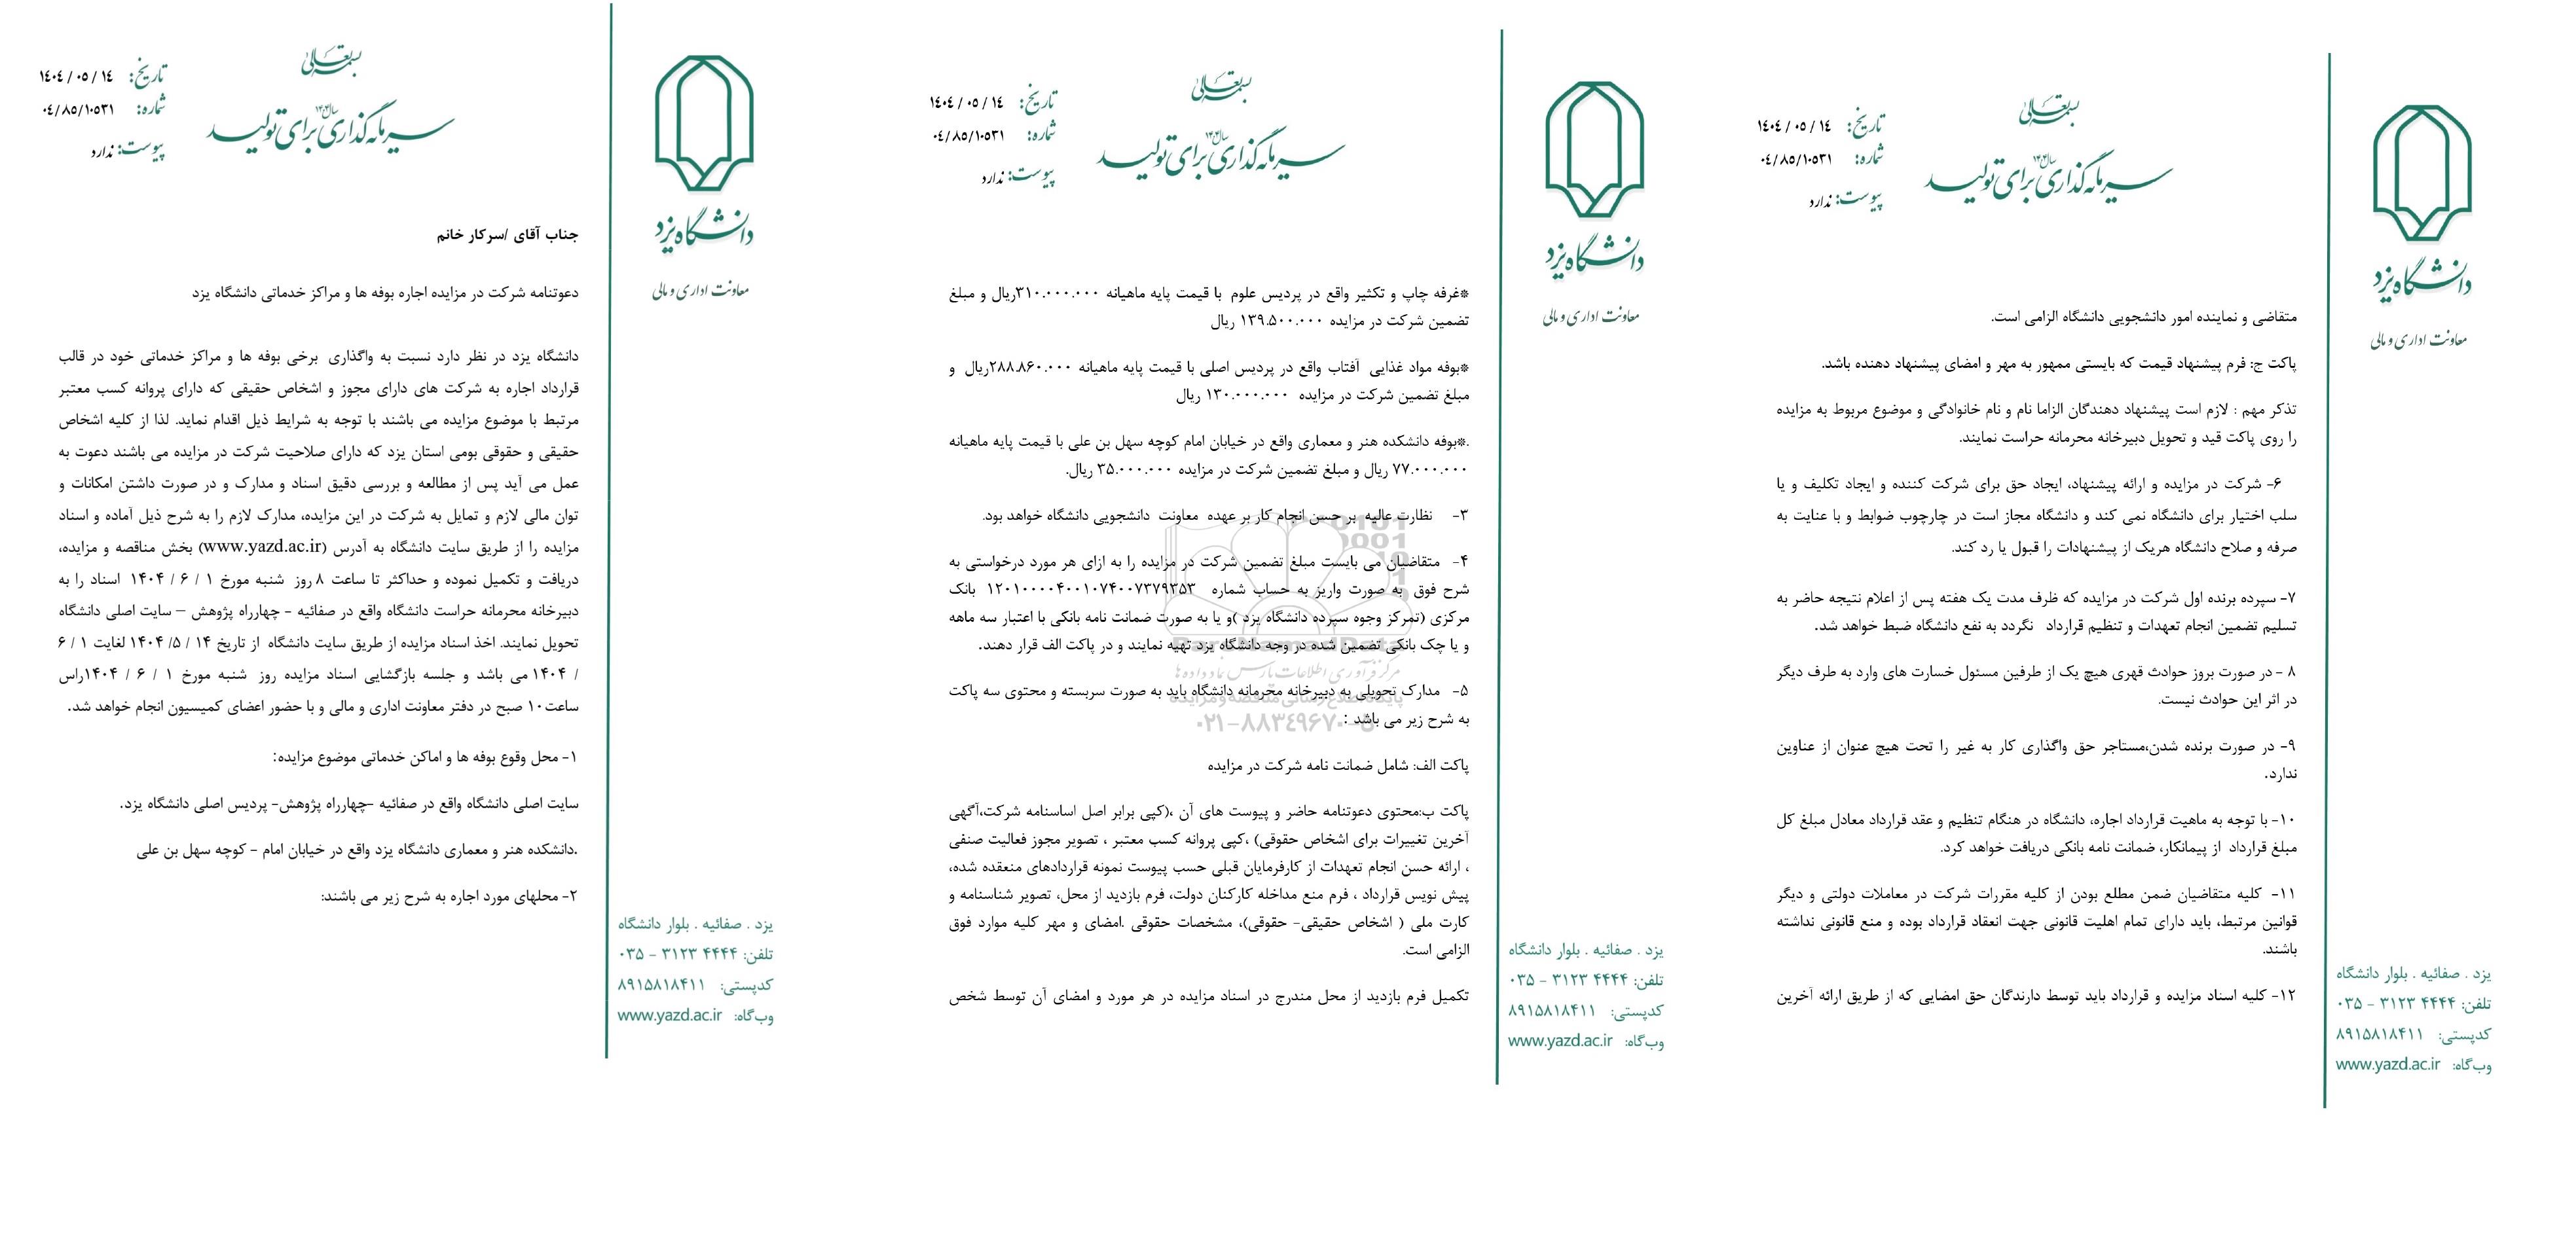 بسمه تعالی
سال ۱۴۰۴
سرمایه گذاری برای تولید
تاریخ: ۱۴۰۴ / ۰۵ / ۱۴
شماره: ۰۴/۸۵/۱۰۵۳۱
پیوست: ندارد
دانشگاه یزد
معاونت اداری و مالی
جناب آقای /سرکار خانم
دعوتنامه شرکت در مزایده اجاره بوفه ها و مراکز خدماتی دانشگاه یزد
دانشگاه یزد در نظر دارد نسبت به واگذاری برخی بوفه ها و مراکز خدماتی خود در قالب
قرارداد اجاره به شرکت های دارای مجوز و اشخاص حقیقی که دارای پروانه کسب معتبر
مرتبط با موضوع مزایده می باشند با توجه به شرایط ذیل اقدام نماید. لذا از کلیه اشخاص
حقیقی و حقوقی بومی استان یزد که دارای صلاحیت شرکت در مزایده می باشند دعوت به
عمل می آید پس از مطالعه و بررسی دقیق اسناد و مدارک و در صورت داشتن امکانات و
توان مالی لازم و تمایل به شرکت در این مزایده، مدارک لازم را به شرح ذیل آماده و اسناد
مزایده را از طریق سایت دانشگاه به آدرس (www.yazd.ac.ir) بخش مناقصه و مزایده،
دریافت و تکمیل نموده و حداکثر تا ساعت ۸ روز شنبه مورخ ۱ / ۶ / ۱۴۰۴ اسناد را به
دبیرخانه محرمانه حراست دانشگاه واقع در صفائیه - چهارراه پژوهش – سایت اصلی دانشگاه
تحویل نمایند. اخذ اسناد مزایده از طریق سایت دانشگاه از تاریخ ۱۴ / ۵/ ۱۴۰۴ لغایت ۱ / ۶
/ ۱۴۰۴ می باشد و جلسه بازگشایی اسناد مزایده روز شنبه مورخ ۱ / ۶ / ۱۴۰۴راس
ساعت۱۰ صبح در دفتر معاونت اداری و مالی و با حضور اعضای کمیسیون انجام خواهد شد.
۱- محل وقوع بوفه ها و اماکن خدماتی موضوع مزایده:
سایت اصلی دانشگاه واقع در صفائیه -چهارراه پژوهش- پردیس اصلی دانشگاه یزد.
.دانشکده هنر و معماری دانشگاه یزد واقع در خیابان امام - کوچه سهل بن علی
۲- محلهای مورد اجاره به شرح زیر می باشند:
یزد . صفائیه . بلوار دانشگاه
تلفن: ۴۴۴۴ ۳۱۲۳ - ۰۳۵
کدپستی: ۸۹۱۵۸۱۸۴۱۱
وب‌گاه: www.yazd.ac.ir
بسمه تعالی
سال ۱۴۰۴
سرمایه گذاری برای تولید
تاریخ: ۱۴۰۴ / ۰۵ / ۱۴
شماره: ۰۴/۸۵/۱۰۵۳۱
پیوست: ندارد
دانشگاه یزد
معاونت اداری و مالی
*غرفه چاپ و تکثیر واقع در پردیس علوم با قیمت پایه ماهیانه ۳۱۰.۰۰۰.۰۰۰ریال و مبلغ
تضمین شرکت در مزایده ۱۳۹.۵۰۰.۰۰۰ ریال
*بوفه مواد غذایی آفتاب واقع در پردیس اصلی با قیمت پایه ماهیانه ۲۸۸.۸۶۰.۰۰۰ریال و
مبلغ تضمین شرکت در مزایده ۱۳۰.۰۰۰.۰۰۰ ریال
.*بوفه دانشکده هنر و معماری واقع در خیابان امام کوچه سهل بن علی با قیمت پایه ماهیانه
۷۷.۰۰۰.۰۰۰ ریال و مبلغ تضمین شرکت در مزایده ۳۵.۰۰۰.۰۰۰ ریال.
۳- نظارت عالیه بر حسن انجام کار بر عهده معاونت دانشجویی دانشگاه خواهد بود.
۴- متقاضیان می بایست مبلغ تضمین شرکت در مزایده را به ازای هر مورد درخواستی به
شرح فوق به صورت واریز به حساب شماره ۱۲۰۱۰۰۰۰۴۰۰۱۰۷۴۰۰۷۳۷۹۳۵۳ بانک
مرکزی (تمرکز وجوه سپرده دانشگاه یزد )و یا به صورت ضمانت نامه بانکی با اعتبار سه ماهه
و یا چک بانکی تضمین شده در وجه دانشگاه یزد تهیه نمایند و در پاکت الف قرار دهند.
۵- مدارک تحویلی به دبیرخانه محرمانه دانشگاه باید به صورت سربسته و محتوی سه پاکت
به شرح زیر می باشد :
پاکت الف: شامل ضمانت نامه شرکت در مزایده
پاکت ب:محتوی دعوتنامه حاضر و پیوست های آن ،(کپی برابر اصل اساسنامه شرکت،آگهی
آخرین تغییرات برای اشخاص حقوقی) ،کپی پروانه کسب معتبر ، تصویر مجوز فعالیت صنفی
، ارائه حسن انجام تعهدات از کارفرمایان قبلی حسب پیوست نمونه قراردادهای منعقده شده،
پیش نویس قرارداد ، فرم منع مداخله کارکنان دولت، فرم بازدید از محل، تصویر شناسنامه و
کارت ملی ( اشخاص حقیقی- حقوقی)، مشخصات حقوقی .امضای و مهر کلیه موارد فوق
الزامی است.
تکمیل فرم بازدید از محل مندرج در اسناد مزایده در هر مورد و امضای آن توسط شخص
مرکز فرآوری اطلاعات پارس نماد داده ها
پایگاه اطلاع رسانی مناقصه و مزایده
۰۲۱-۸۸۳۴۹۶۷۰-۵
یزد . صفائیه . بلوار دانشگاه
تلفن: ۴۴۴۴ ۳۱۲۳ - ۰۳۵
کدپستی: ۸۹۱۵۸۱۸۴۱۱
وب‌گاه: www.yazd.ac.ir
بسمه تعالی
سال ۱۴۰۴
سرمایه گذاری برای تولید
تاریخ: ۱۴۰۴ / ۰۵ / ۱۴
شماره: ۰۴/۸۵/۱۰۵۳۱
پیوست: ندارد
دانشگاه یزد
معاونت اداری و مالی
متقاضی و نماینده امور دانشجویی دانشگاه الزامی است.
پاکت ج: فرم پیشنهاد قیمت که بایستی ممهور به مهر و امضای پیشنهاد دهنده باشد.
تذکر مهم : لازم است پیشنهاد دهندگان الزاما نام و نام خانوادگی و موضوع مربوط به مزایده
را روی پاکت قید و تحویل دبیرخانه محرمانه حراست نمایند.
۶- شرکت در مزایده و ارائه پیشنهاد، ایجاد حق برای شرکت کننده و ایجاد تکلیف و یا
سلب اختیار برای دانشگاه نمی کند و دانشگاه مجاز است در چارچوب ضوابط و با عنایت به
صرفه و صلاح دانشگاه هریک از پیشنهادات را قبول یا رد کند.
۷- سپرده برنده اول شرکت در مزایده که ظرف مدت یک هفته پس از اعلام نتیجه حاضر به
تسلیم تضمین انجام تعهدات و تنظیم قرارداد نگردد به نفع دانشگاه ضبط خواهد شد.
۸ - در صورت بروز حوادث قهری هیچ یک از طرفین مسئول خسارت های وارد به طرف دیگر
در اثر این حوادث نیست.
۹- در صورت برنده شدن،مستاجر حق واگذاری کار به غیر را تحت هیچ عنوان از عناوین
ندارد.
۱۰- با توجه به ماهیت قرارداد اجاره، دانشگاه در هنگام تنظیم و عقد قرارداد معادل مبلغ کل
مبلغ قرارداد از پیمانکار، ضمانت نامه بانکی دریافت خواهد کرد.
۱۱- کلیه متقاضیان ضمن مطلع بودن از کلیه مقررات شرکت در معاملات دولتی و دیگر
قوانین مرتبط، باید دارای تمام اهلیت قانونی جهت انعقاد قرارداد بوده و منع قانونی نداشته
باشند.
۱۲- کلیه اسناد مزایده و قرارداد باید توسط دارندگان حق امضایی که از طریق ارائه آخرین
یزد . صفائیه . بلوار دانشگاه
تلفن: ۴۴۴۴ ۳۱۲۳ - ۰۳۵
کدپستی: ۸۹۱۵۸۱۸۴۱۱
وب‌گاه: www.yazd.ac.ir